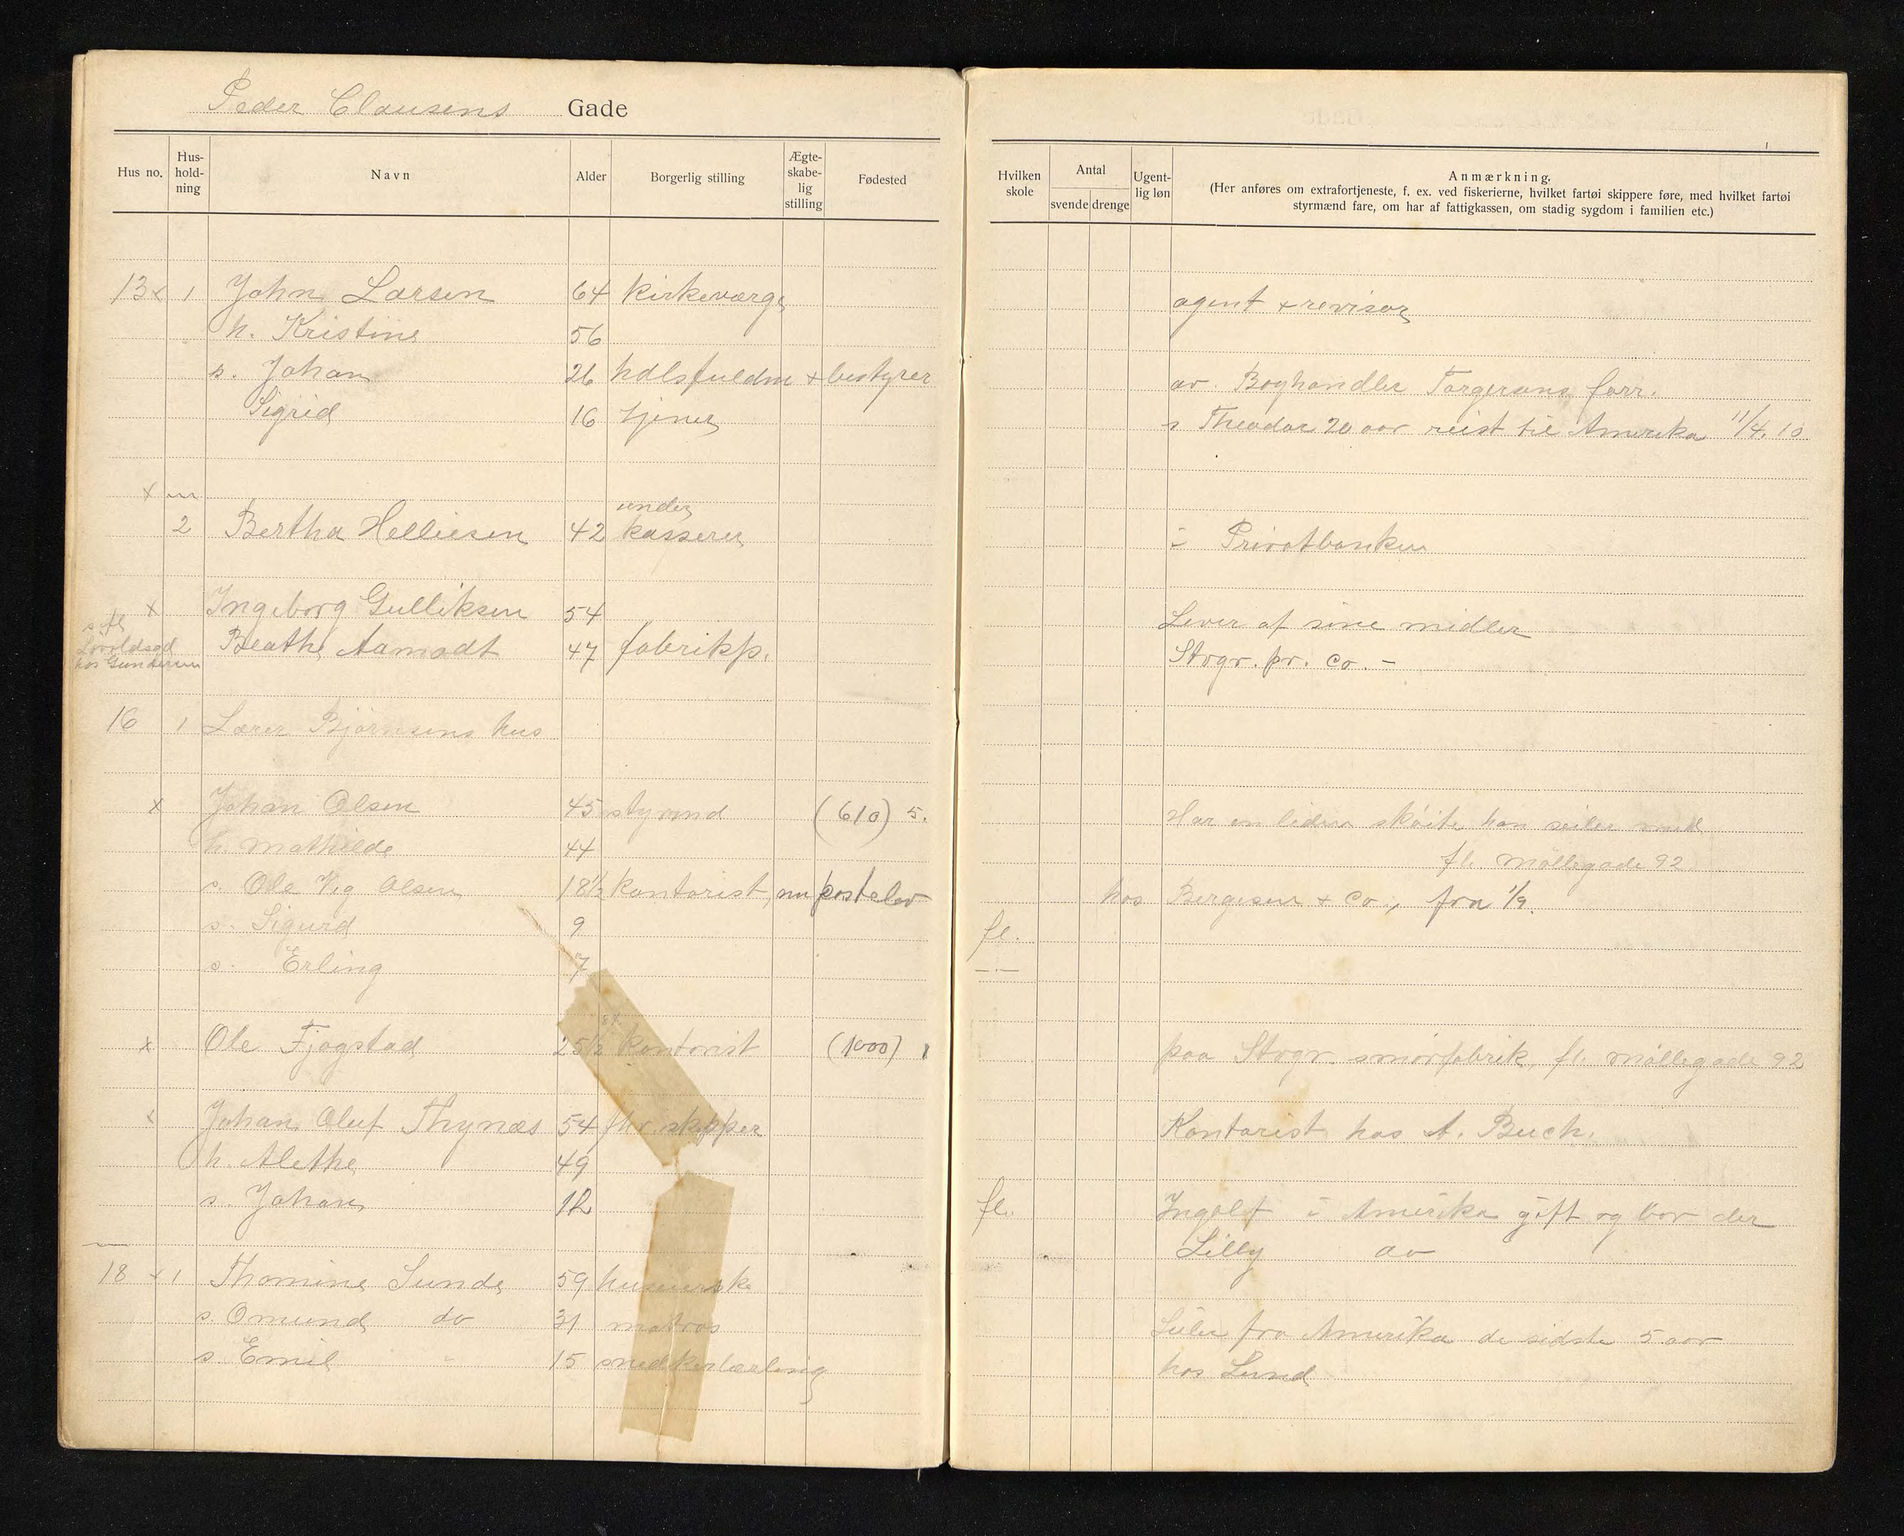 Peder Clausens Gade
Hus no. Hus-hold-ning Navn Alder Borgerlig stilling Ægte-skabe-lig stilling Fødested
13 x 1 John Larsen 64 kirkeværge
h. Kristine 56
s. Johan 26 hdlsfuldm + bestyrer
Sigrid 16 tjener
x
under
2 Bertha Helliesen 42 kasserer
x Ingeborg Gulliksen 54
s. fl.
Løvoldsgd Beathe Aamodt 47 fabrikp.
hos Gundersen
16 1 Lærer Bjørnsens hus
x Johan Olsen 45 styrmd (610) 5.
h. Mathilde 44
s. Ole Vig Olsen 18½ kontorist, nu postelev
s. Sigurd 9
s. Erling 7
x Ole Fjogstad 25½ kontorist (1000) 1
x Johan Oluf Thynæs 54 fhv. skipper
h. Alethe 49
s. Johan 12
18 x 1 Thomine Sunde 59 huseierske
s. Omund do 31 matros
s. Emil " 15 snedkerlærling
Hvilken skole Antal svende drenge Ugent-lig løn Anmærkning.
(Her anføres om extrafortjeneste, f. ex. ved fiskerierne, hvilket fartøi skippere føre, med hvilket fartøi
styrmænd fare, om har af fattigkassen, om stadig sygdom i familien etc.)
agent + revisor
av Boghandler Torgersens forr.
s Theodor 20 aar reist til Amerika 11/4. 10
i Privatbanken
Lever af sine midler
Stvgr. pr. co. -
Har en liden skøite han seiler med
fl. Møllegade 92
hos Bergesen + Co., fra 1/9.
fl.
-.-
paa Stvgr smørfabrik, fl. Møllegade 92
Kontorist hos A. Buch.
fl. Ingolf i Amerika gift og bor der
Lilly do
Seiler fra Amerika de sidste 5 aar
hos Lund